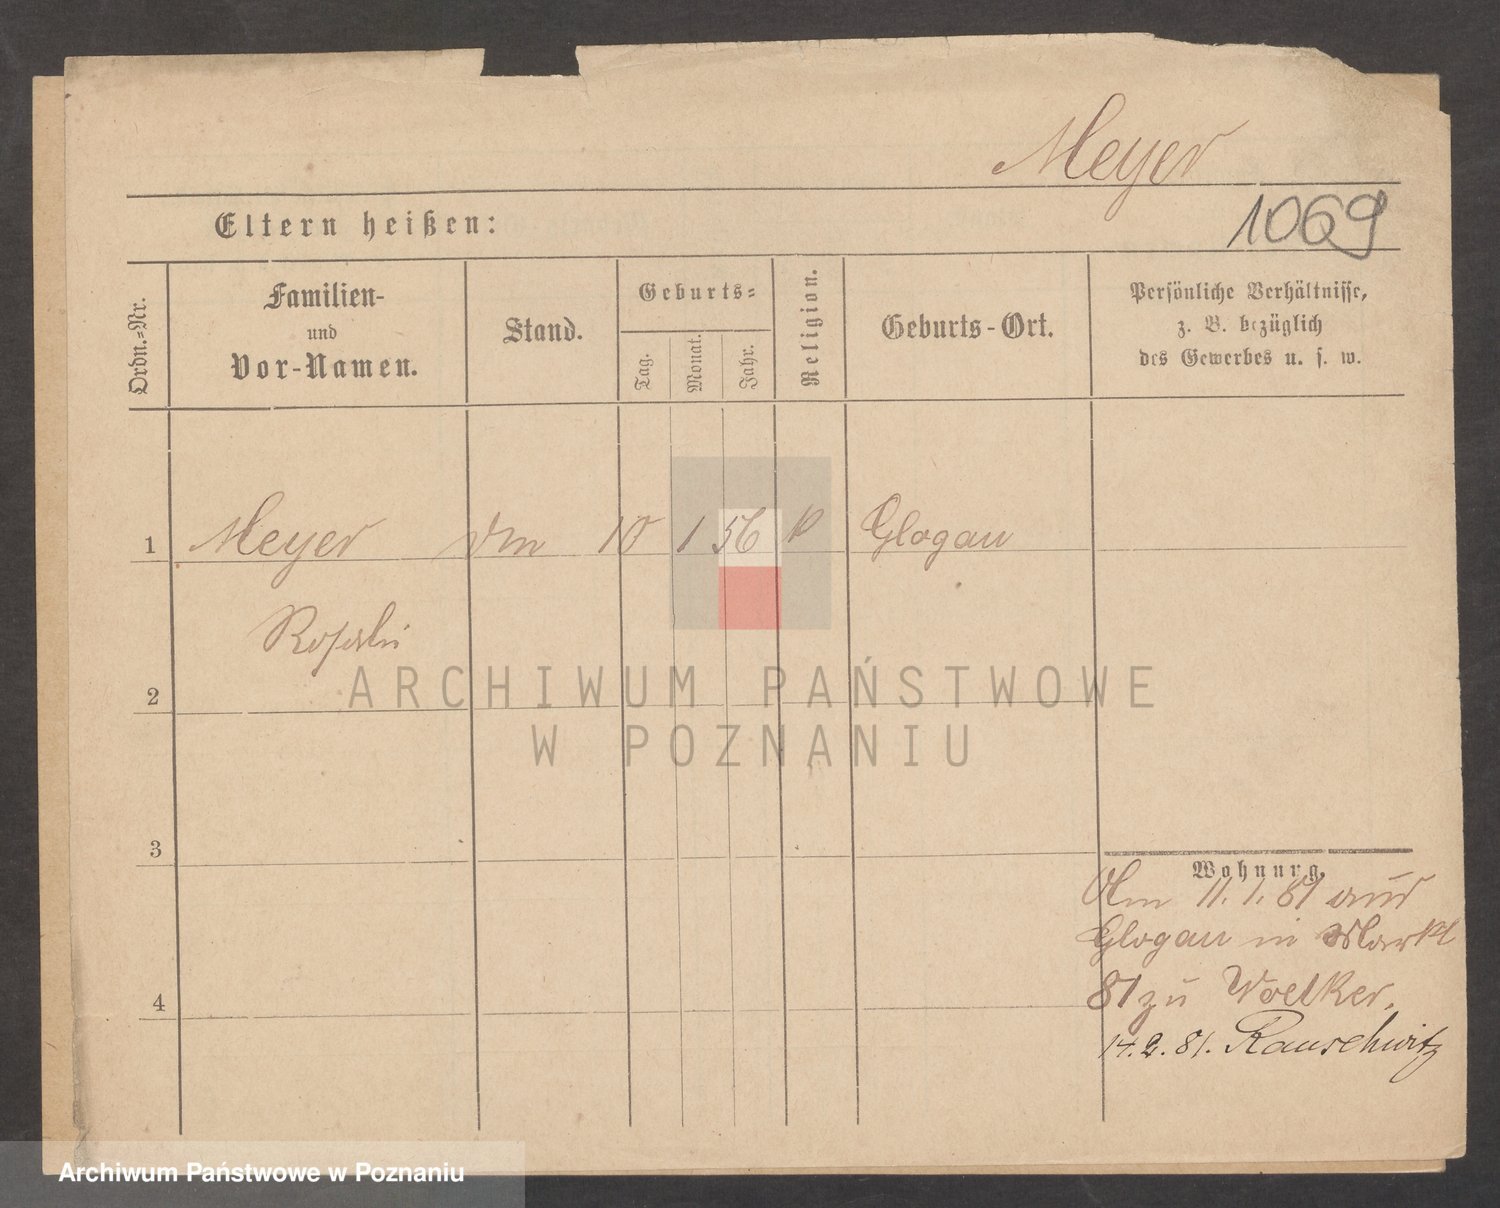 Meyer
Eltern heißen:
1069
Ordn.=Nr.
Familien-
und
Vor-Namen.
Stand.
Geburts=
Tag.
Monat.
Jahr.
Religion.
Geburts-Ort.
Persönliche Verhältnisse,
z. B. bezüglich
des Gewerbes u. s. w.
1 Meyer 10 1 56 Glogau
2
3
4
Wohnung.
Am 11. 1. 81 aus
Glogau in Markt
81 zu Voelker.
14. 2. 81. Rauschwitz
ARCHIWUM PAŃSTWOWE
W POZNANIU
Archiwum Państwowe w Poznaniu